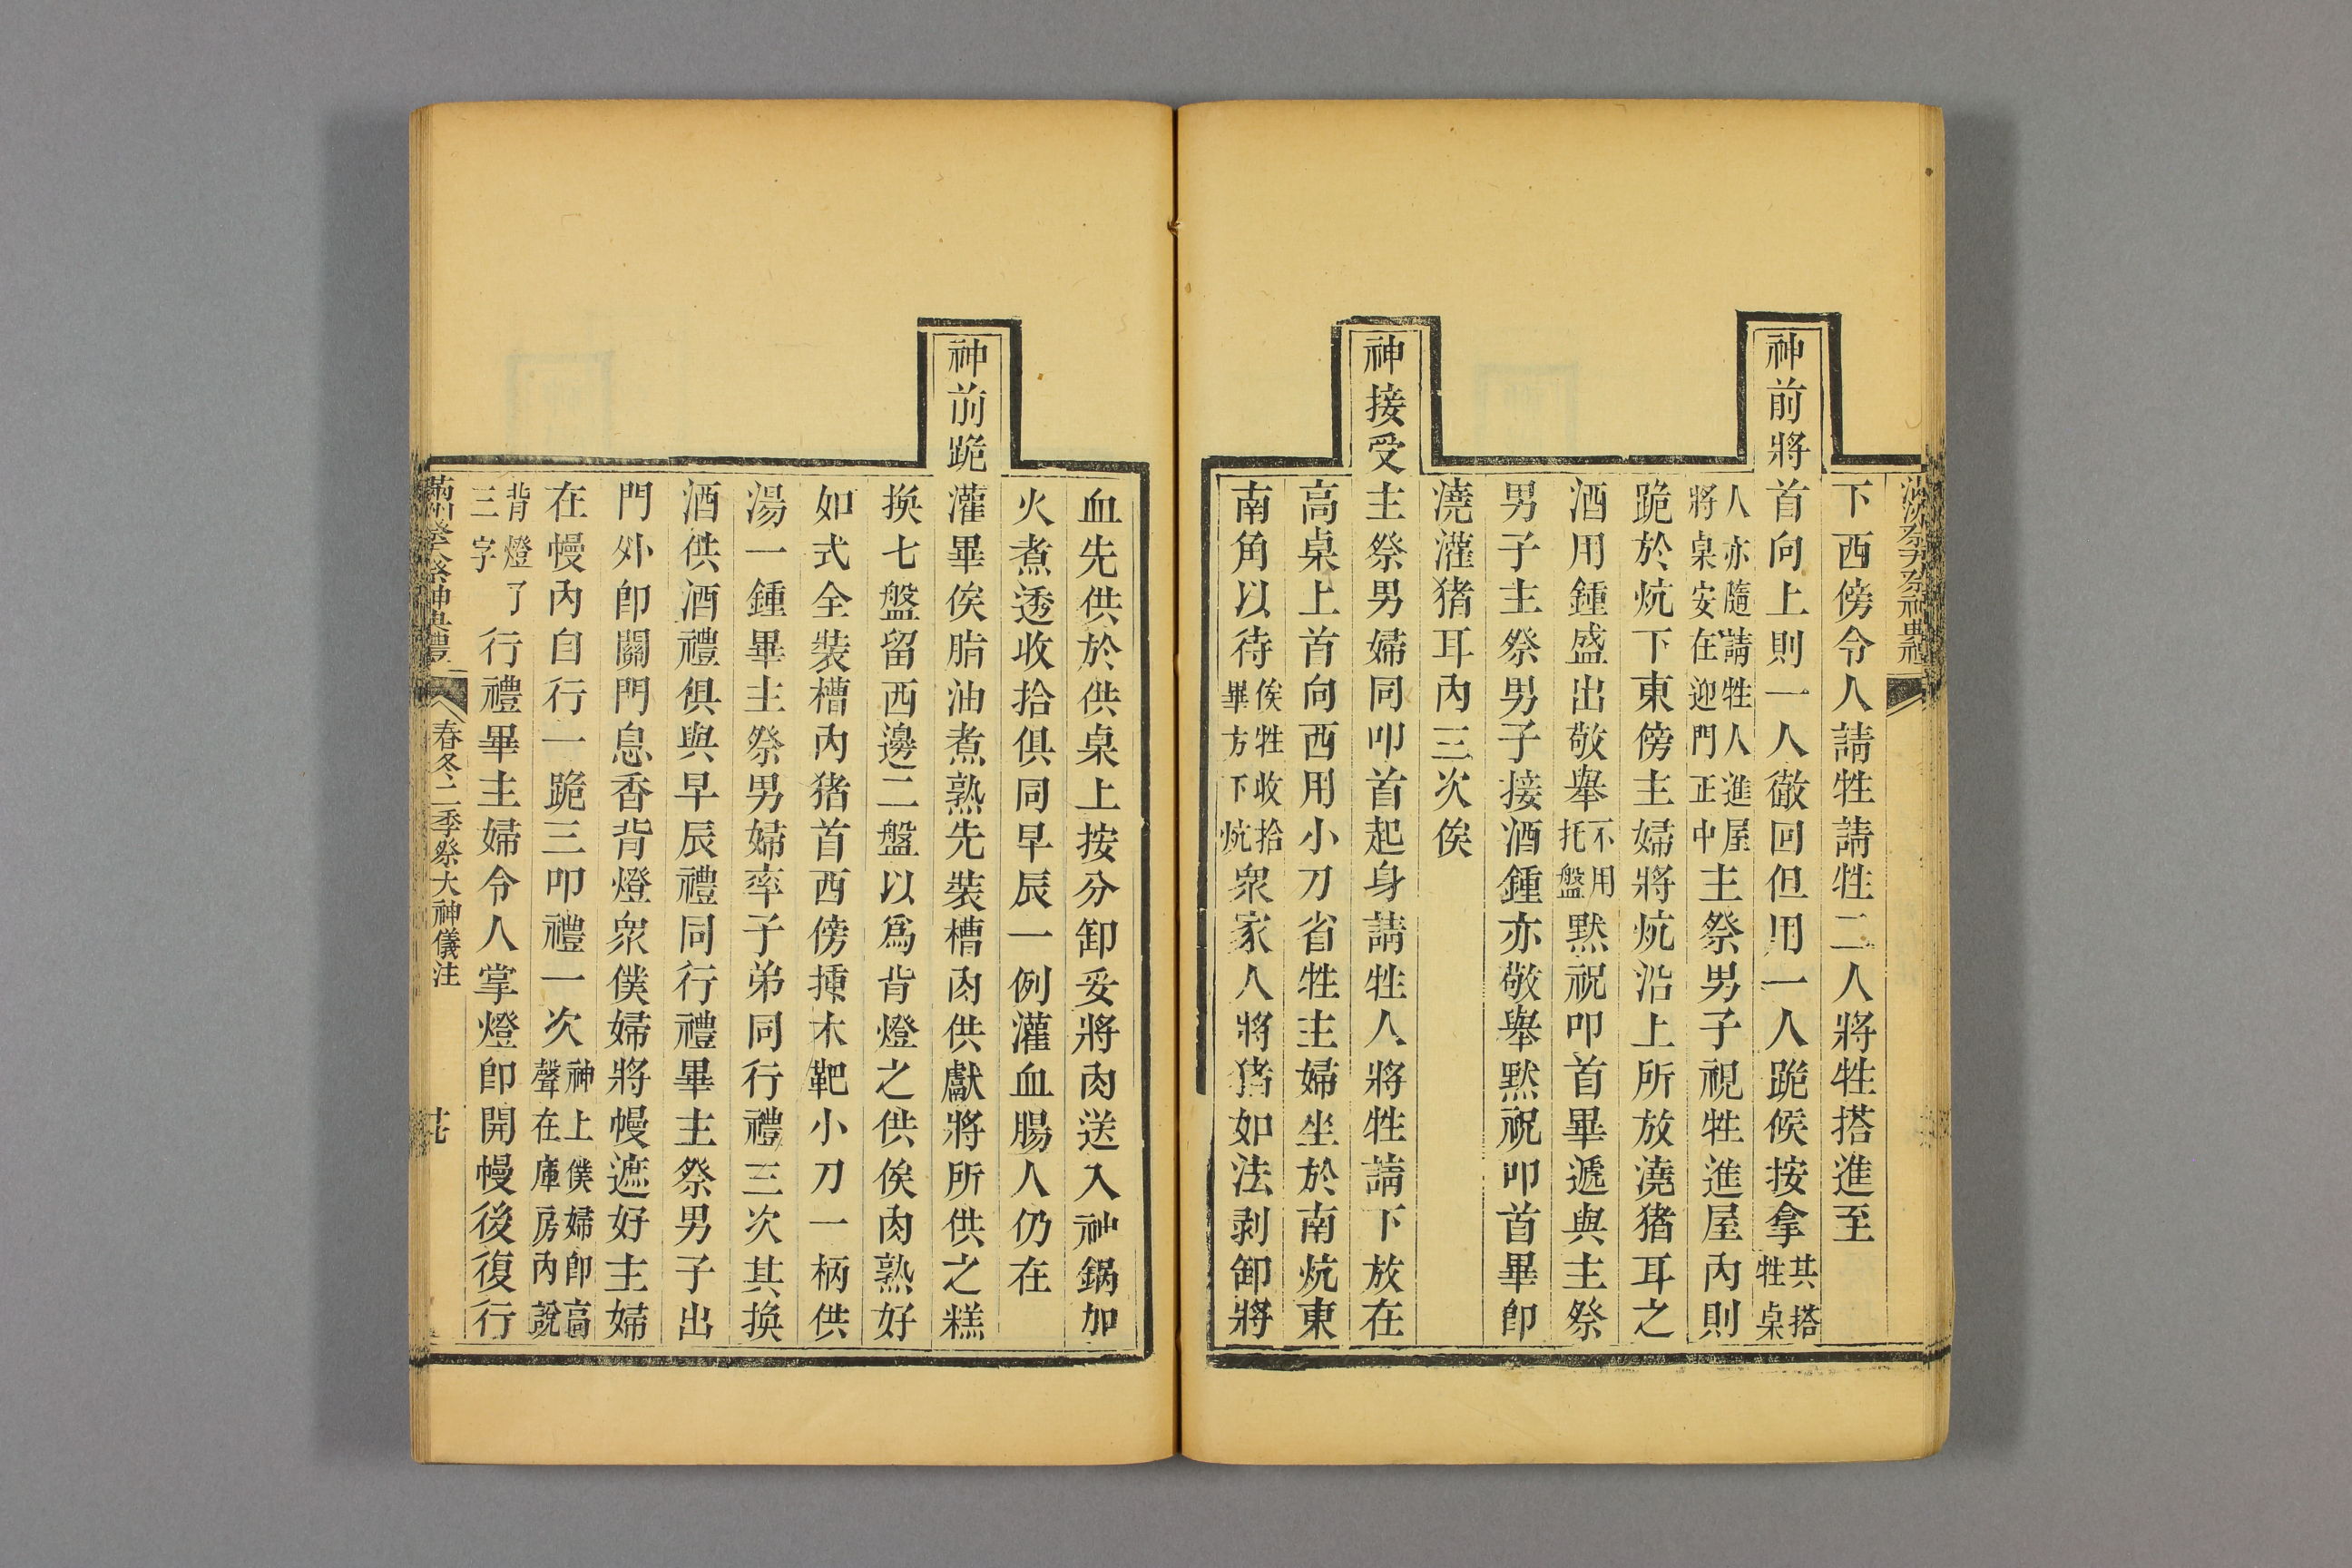 滿洲祭天祭神典禮
下西傍令人請牲請牲二人將牲搭進至
神前將首向上則一人徹回但用一人跪候按拿其搭牲桌
人亦隨請牲人進屋將桌安在迎門正中主祭男子視牲進屋內則
跪於炕下東傍主婦將炕沿上所放澆猪耳之
酒用鍾盛出敬舉不用托盤默祝叩首畢遞與主祭
男子主祭男子接酒鍾亦敬舉默祝叩首畢卽
澆灌猪耳內三次俟
神接受主祭男婦同叩首起身請牲人將牲請下放在
高桌上首向西用小刀省牲主婦坐於南炕東
南角以待俟牲收拾畢方下炕衆家人將猪如法剥卸將
血先供於供桌上按分卸妥將肉送入神鍋加
火煮透收拾俱同早辰一例灌血腸人仍在
神前跪灌畢俟脂油煮熟先裝槽肉供獻將所供之糕
換七盤留西邊二盤以爲背燈之供俟肉熟好
如式全裝槽內猪首西傍揷木靶小刀一柄供
湯一鍾畢主祭男婦率子弟同行禮三次其換
酒供酒禮俱與早辰禮同行禮畢主祭男子出
門外卽關門息香背燈衆僕婦將幔遮好主婦
在幔內自行一跪三叩禮一次神上僕婦卽高聲在庫房內說
背燈了三字行禮畢主婦令人掌燈卽開幔後復行
滿洲祭天祭神典禮 春冬二季祭大神儀注 廿